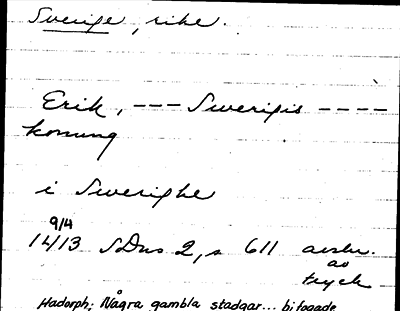 Sverige, rike.
Erik, --- Swerigis ----
konung
i Swerighe
9/4
1413 SDns 2, s 611 avskr.
av
tryck
Hadorph: Några gambla stadgar... bifogade